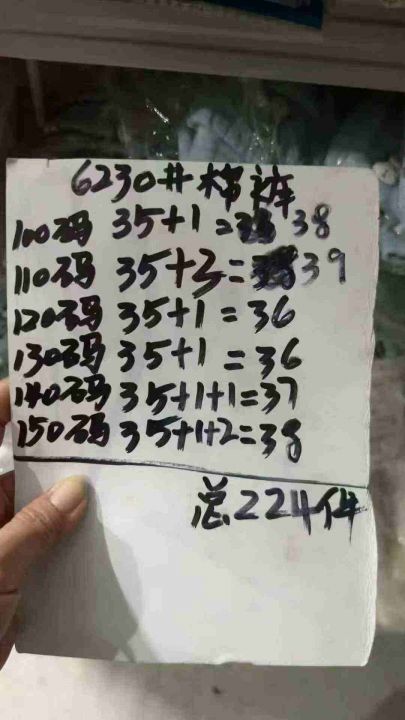 6230# 棉裤
100码 35+1= 38
110码 35+3= 39
120码 35+1=36
130码 35+1=36
140码 35+1+1=37
150码 35+1+2=38
总224件